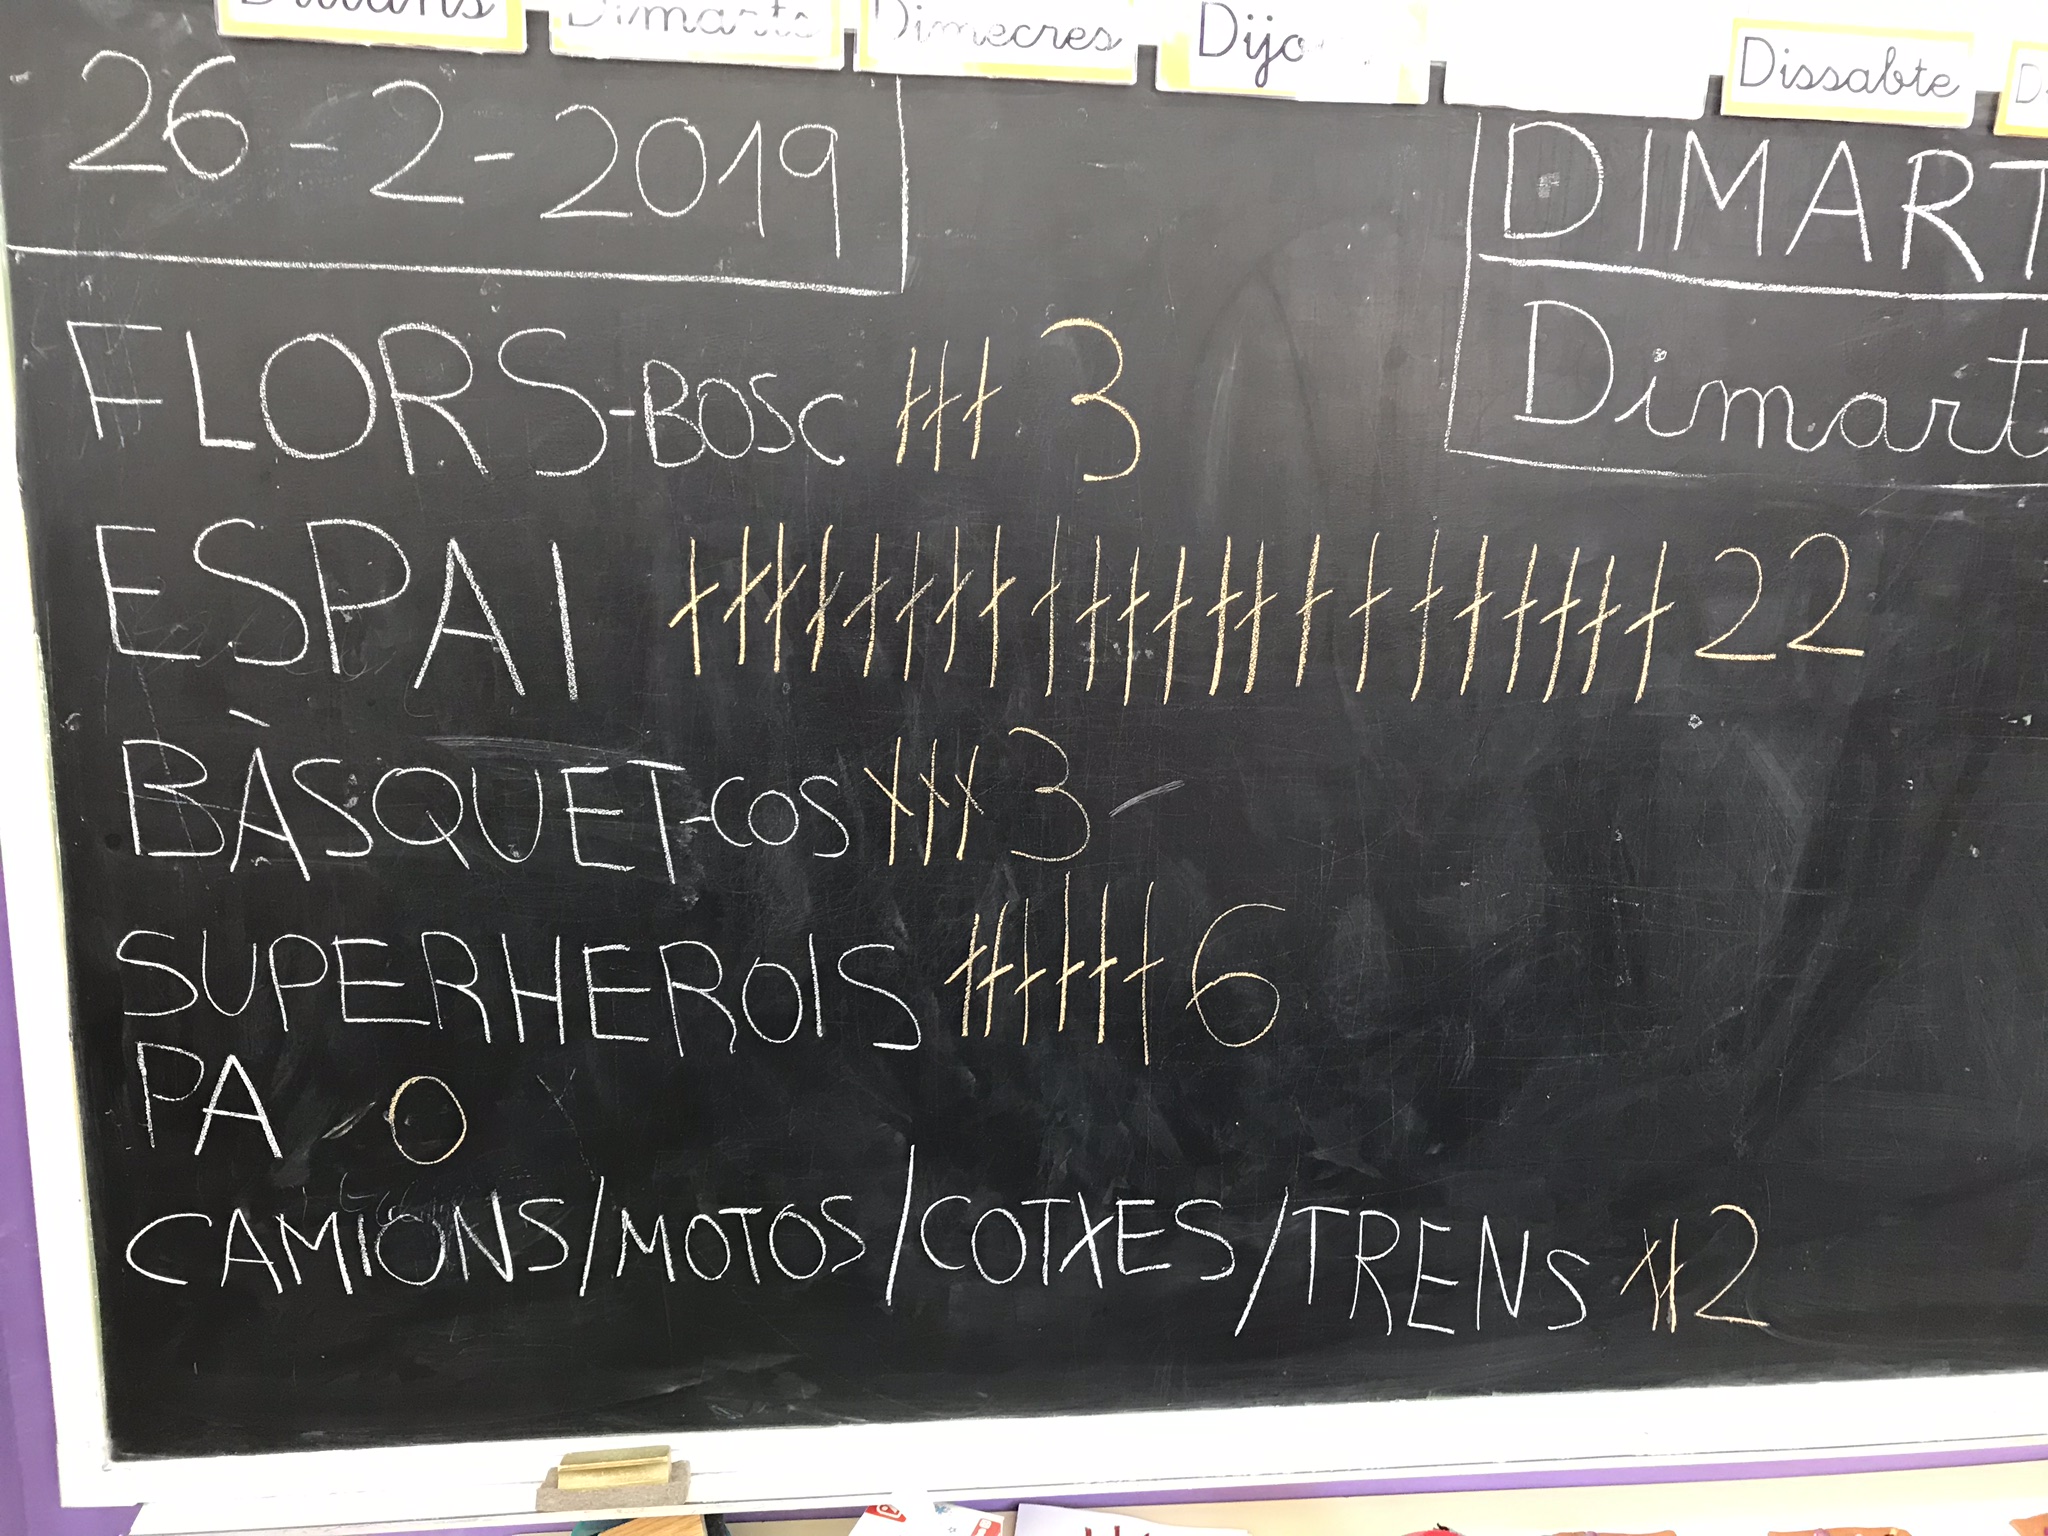 Dilluns Dimarts Dimecres Dijo Dissabte
26-2-2019
DIMART
Dimart
FLORS-BOSC 3
ESPAI 22
BÀSQUET-COS 3
SUPERHEROIS 6
PA 0
CAMIONS/MOTOS/COTXES/TRENS 2